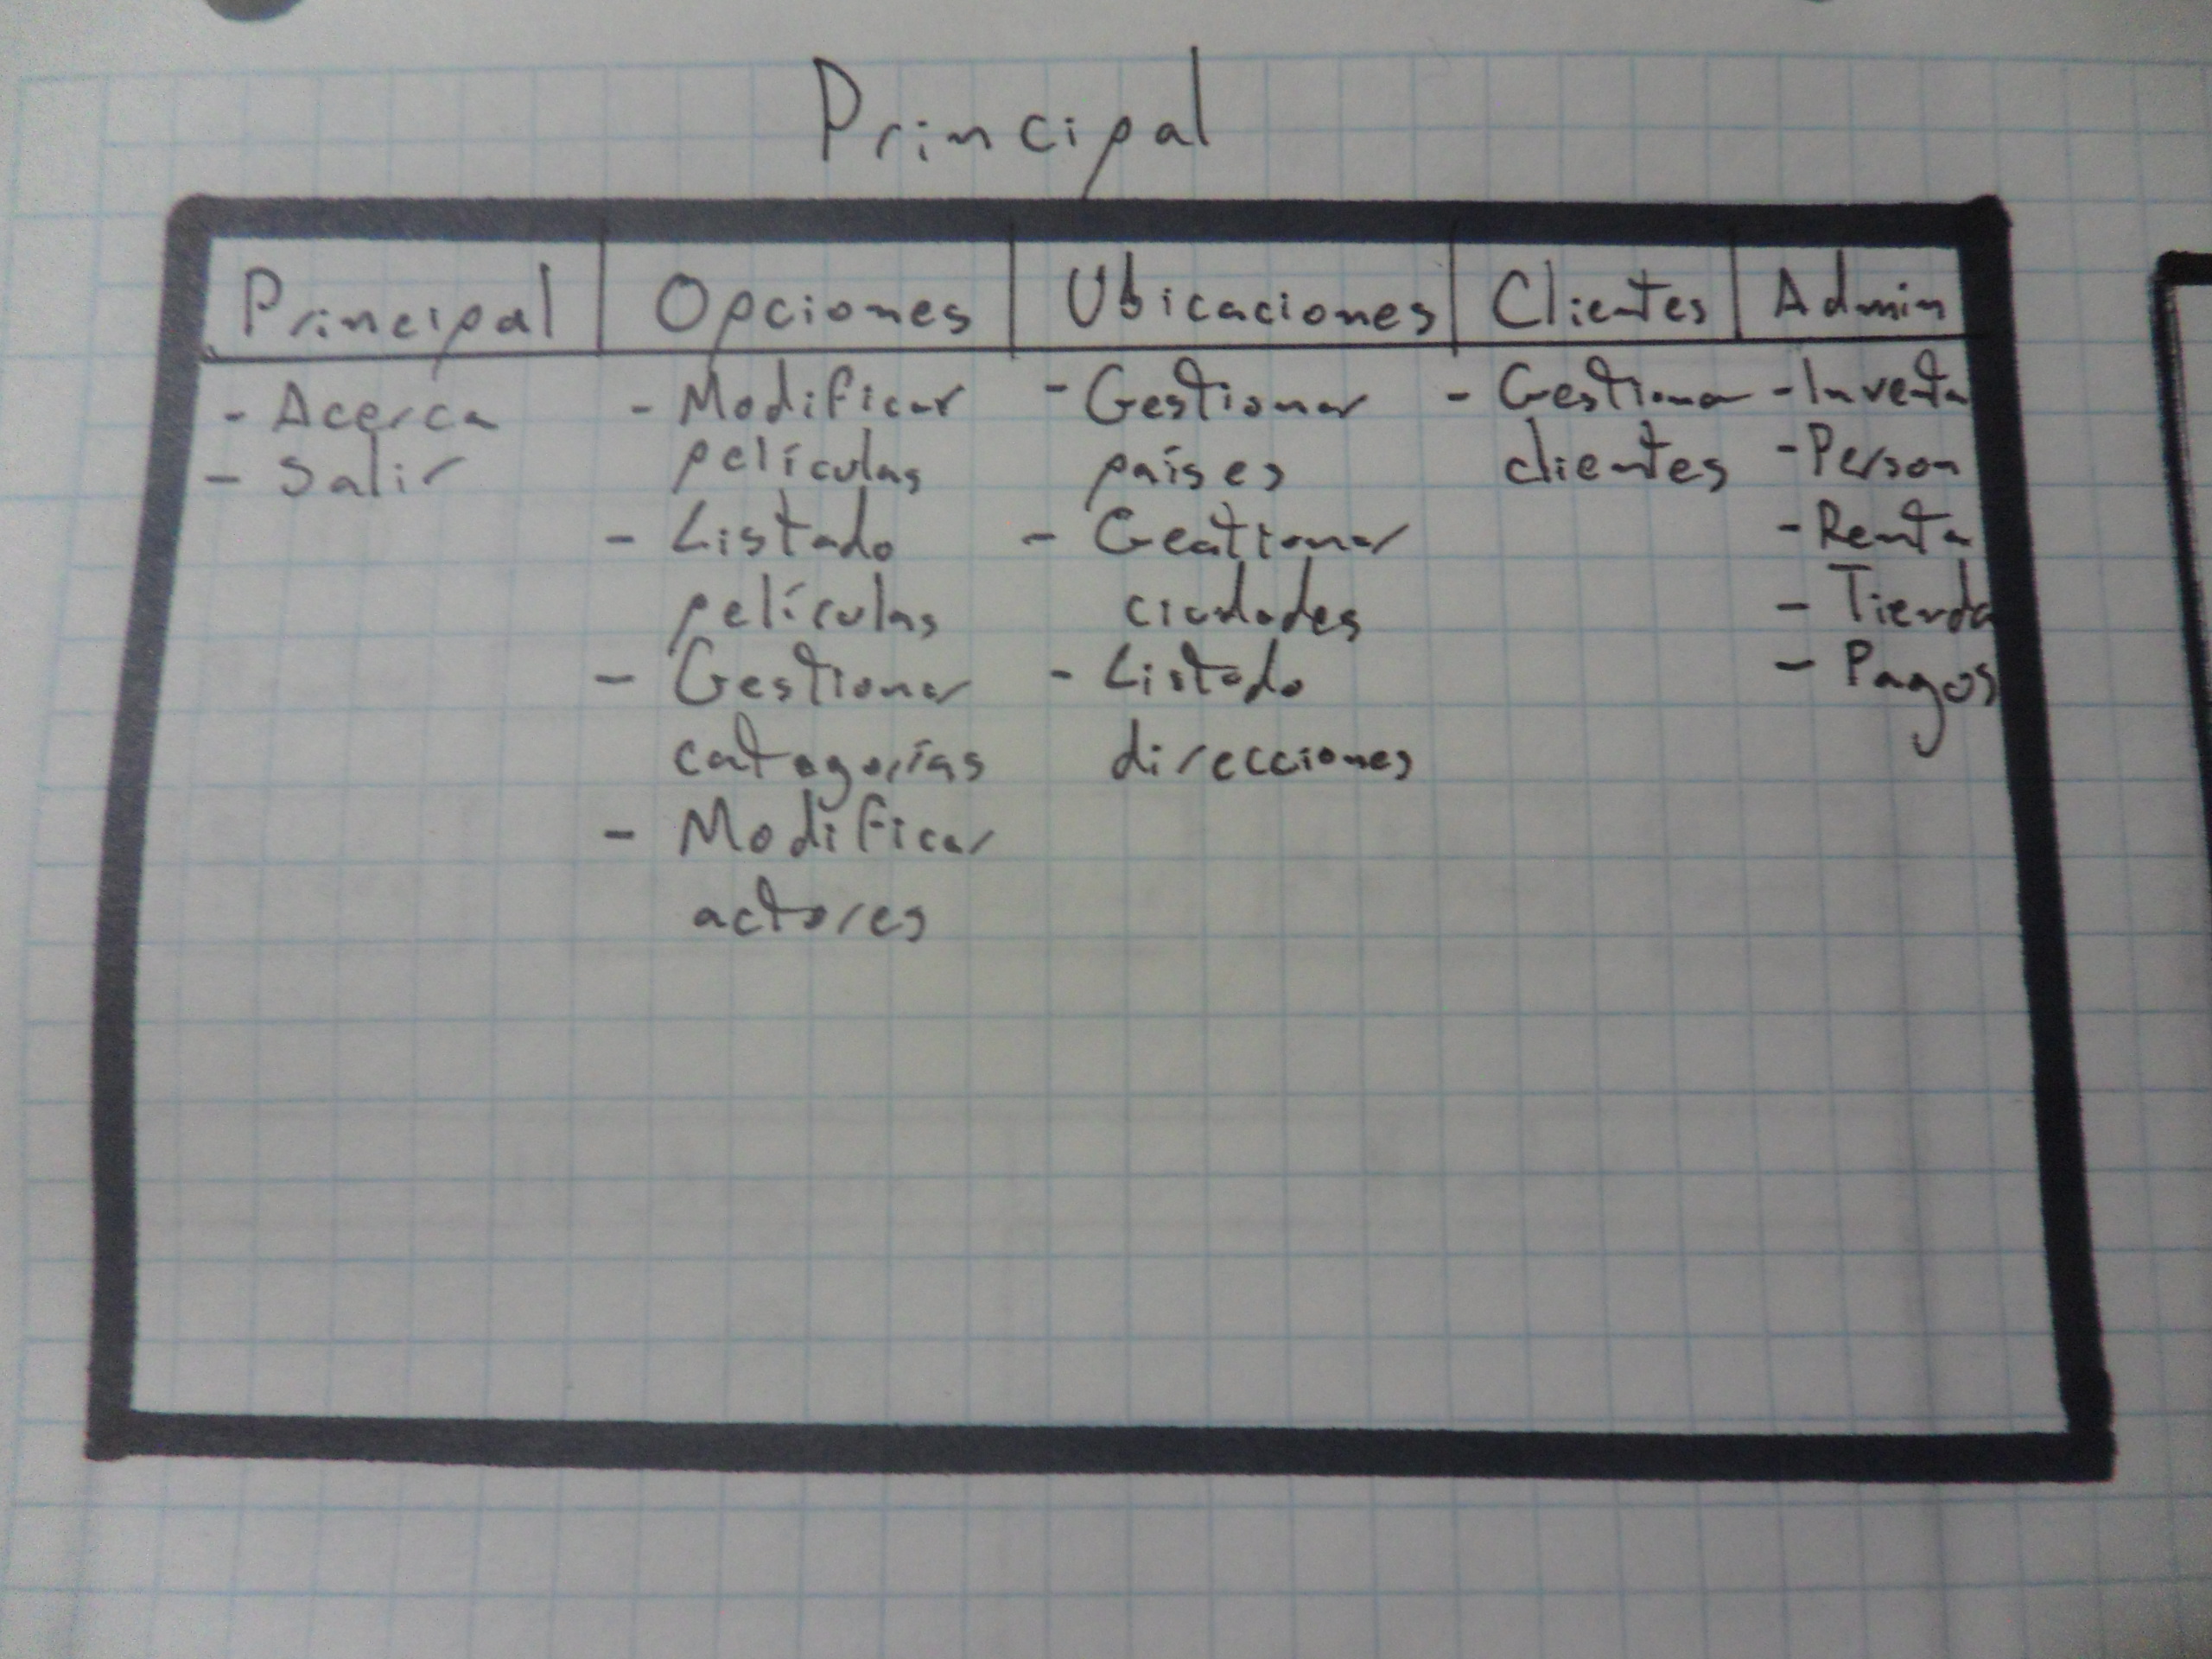 Principal
Principal Opciones Ubicaciones Clientes Admin
- Acerca
- Salir
- Modificar
películas
- Listado
películas
- Gestionar
categorías
- Modificar
actores
- Gestionar
países
- Geationar
ciudades
- Listado
direcciones
- Gestionar
clientes
- Inventa
- Person
- Renta
- Tienda
- Pagos